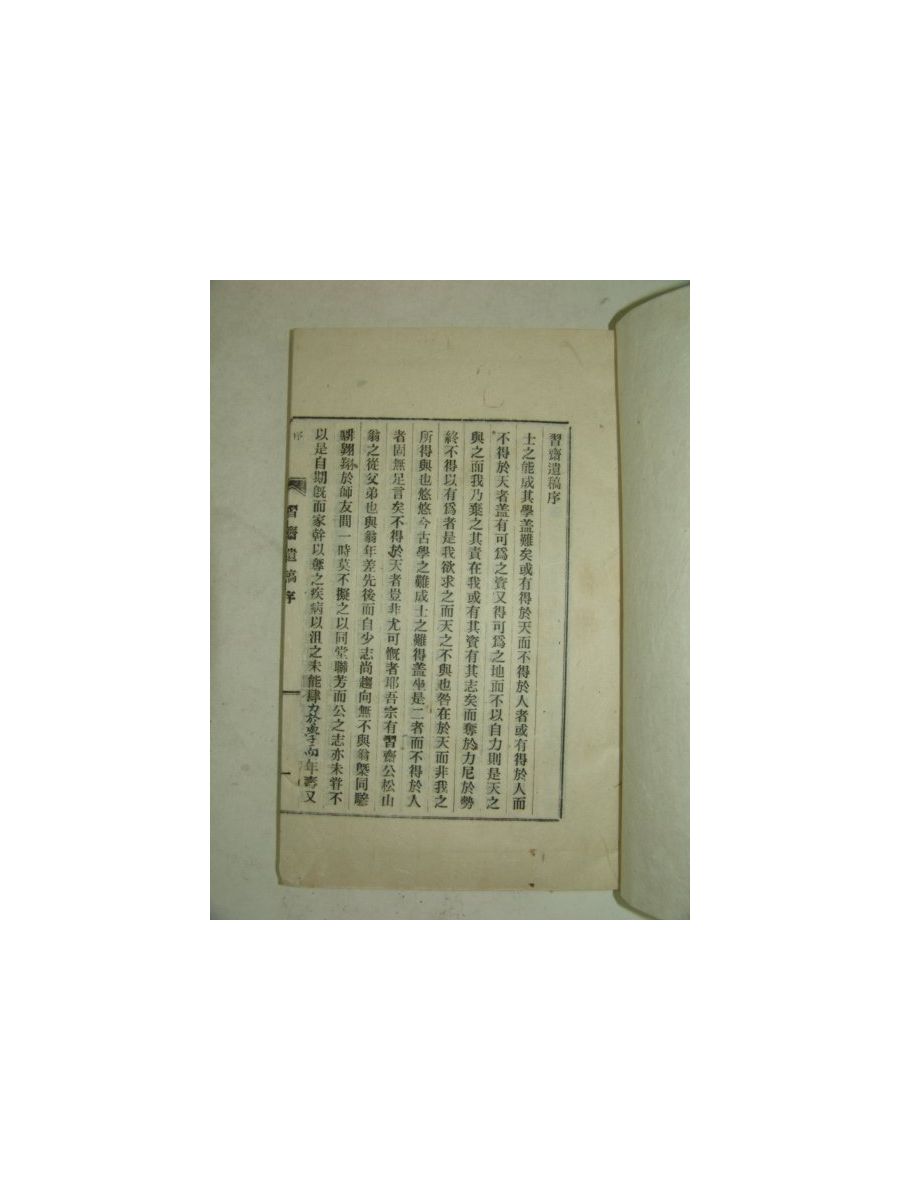 習齋遺稿序
士之能成其學盖難矣或有得於天而不得於人者或有得於人而
不得於天者盖有可爲之資又得可爲之地而不以自力則是天之
與之而我乃棄之其責在我或有其資有其志矣而奪於力尼於勢
終不得以有爲者是我欲求之而天之不與也咎在於天而非我之
所得與也悠悠今古學之難成士之難得盖坐是二者而不得於人
者固無足言矣不得於天者豈非尤可慨者耶吾宗有習齋公松山
翁之從父弟也與翁年差先後而自少志尚趨向無不與翁槩同驂
騈翺翔於師友間一時莫不擬之以同堂聯芳而公之志亦未甞不
以是自期旣而家幹以奪之疾病以沮之未能肆力於學而年壽又
序
習齋遺稿序